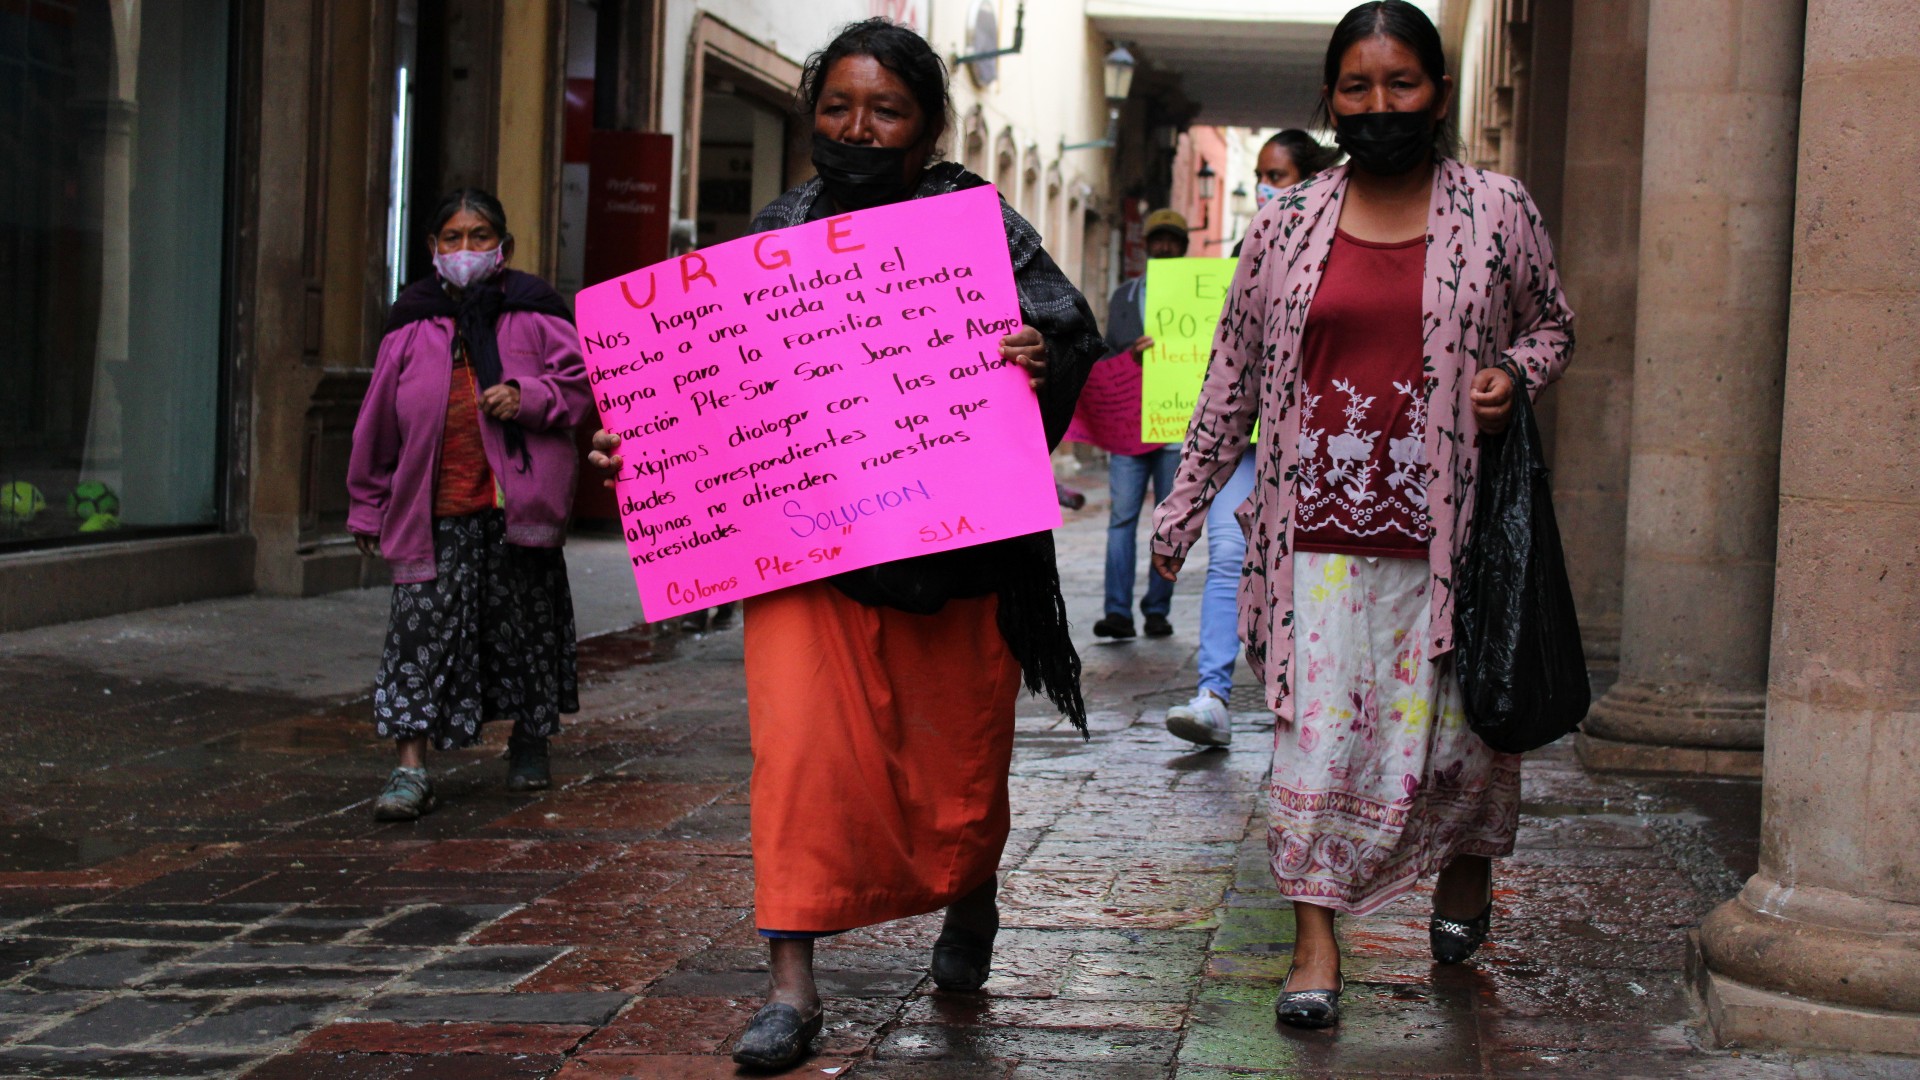 URGE
Nos hagan realidad el
derecho a una vida y vienda
digna para la Familia en
Fracción Pte-Sur San Juan de Abajo
Exigimos dialogar con las autori
dades correspondientes ya que
algunas no atienden nuestras
necesidades. SOLUCION.
Colonos Pte-Sur" SJA.
Perfumes
Similares
Ex
POS
Hecto
Abaj